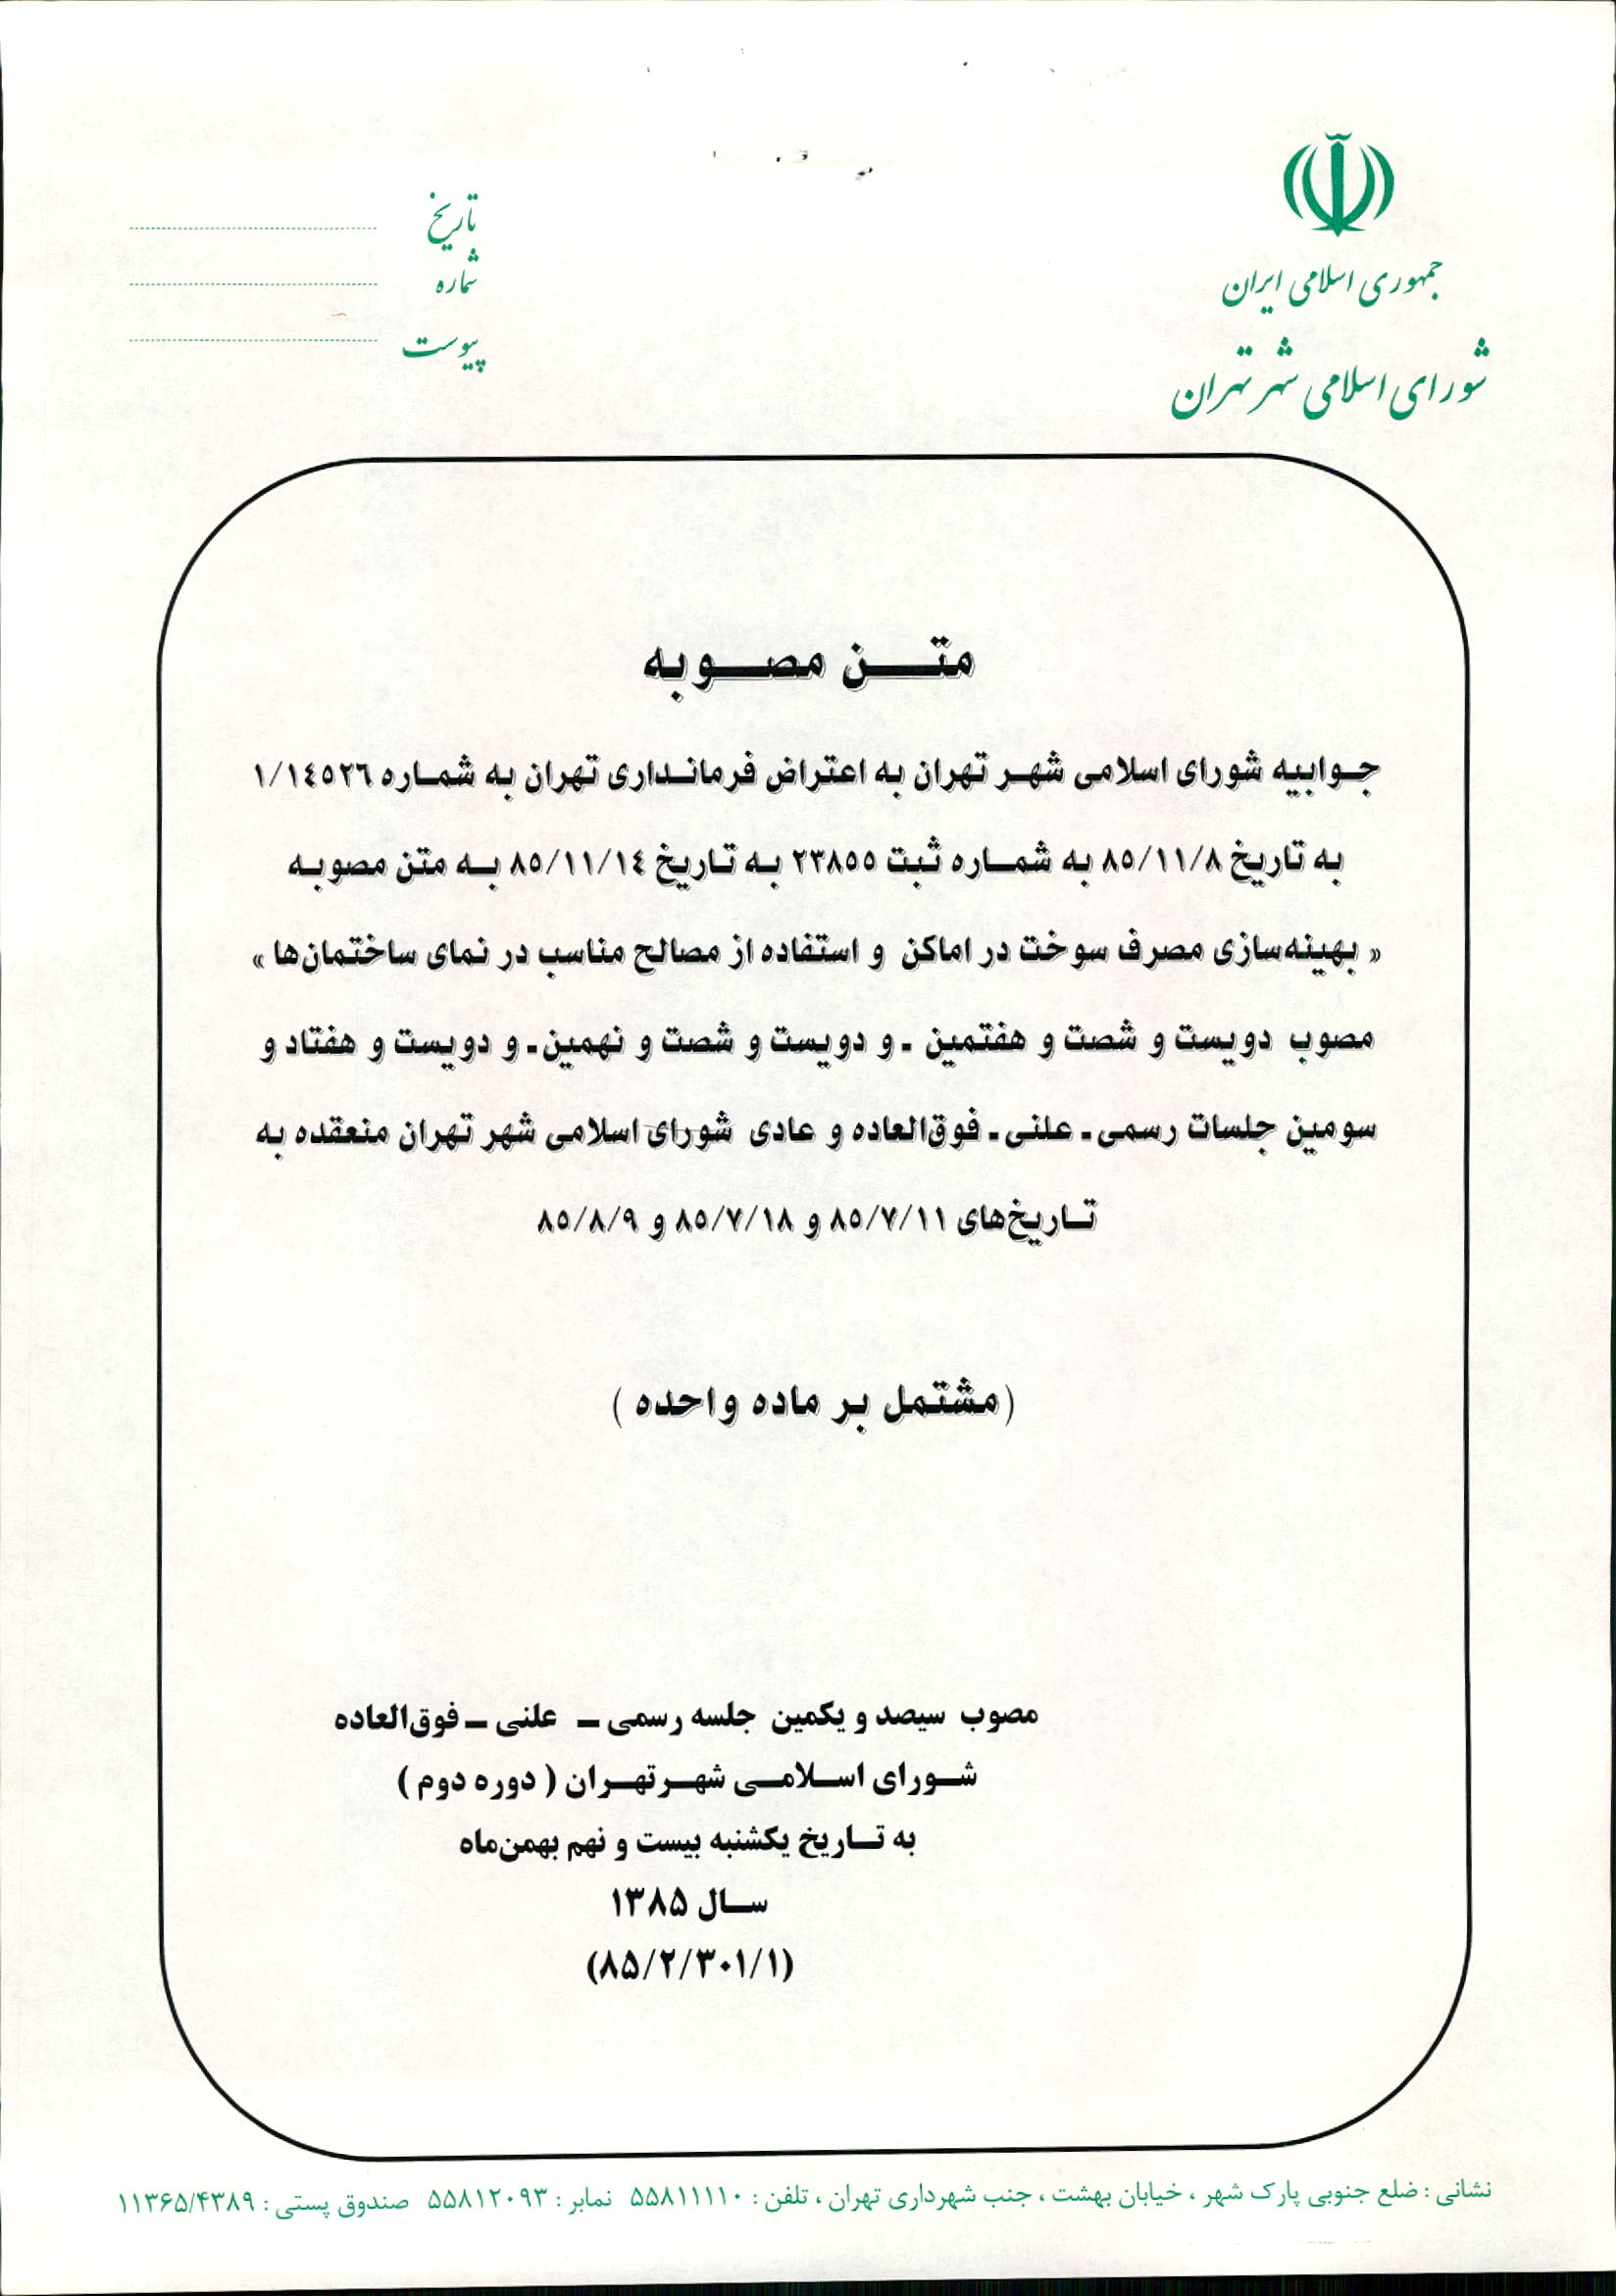 جمهوری اسلامی ایران
شورای اسلامی شهر تهران
تاریخ
شماره
پیوست
متن مصوبه
جوابیه شورای اسلامی شهر تهران به اعتراض فرمانداری تهران به شماره ۱/۱٤٥۲٦
به تاریخ ۸٥/۱۱/۸ به شماره ثبت ۲۳۸٥٥ به تاریخ ۸٥/۱۱/۱٤ به متن مصوبه
« بهینه‌سازی مصرف سوخت در اماکن و استفاده از مصالح مناسب در نمای ساختمان‌ها »
مصوب دویست و شصت و هفتمین ـ و دویست و شصت و نهمین ـ و دویست و هفتاد و
سومین جلسات رسمی ـ علنی ـ فوق‌العاده و عادی شورای اسلامی شهر تهران منعقده به
تاریخ‌های ۸٥/۷/۱۱ و ۸٥/۷/۱۸ و ۸٥/۸/۹
(مشتمل بر ماده واحده )
مصوب سیصد و یکمین جلسه رسمی ـ علنی ـ فوق‌العاده
شورای اسلامی شهر تهران ( دوره دوم )
به تاریخ یکشنبه بیست و نهم بهمن‌ماه
سال ۱۳۸۵
(۸۵/۲/۳۰۱/۱)
نشانی : ضلع جنوبی پارک شهر ، خیابان بهشت ، جنب شهرداری تهران ، تلفن : ۵۵۸۱۱۱۱۰ نمابر : ۵۵۸۱۲۰۹۳ صندوق پستی : ۱۱۳۶۵/۴۳۸۹